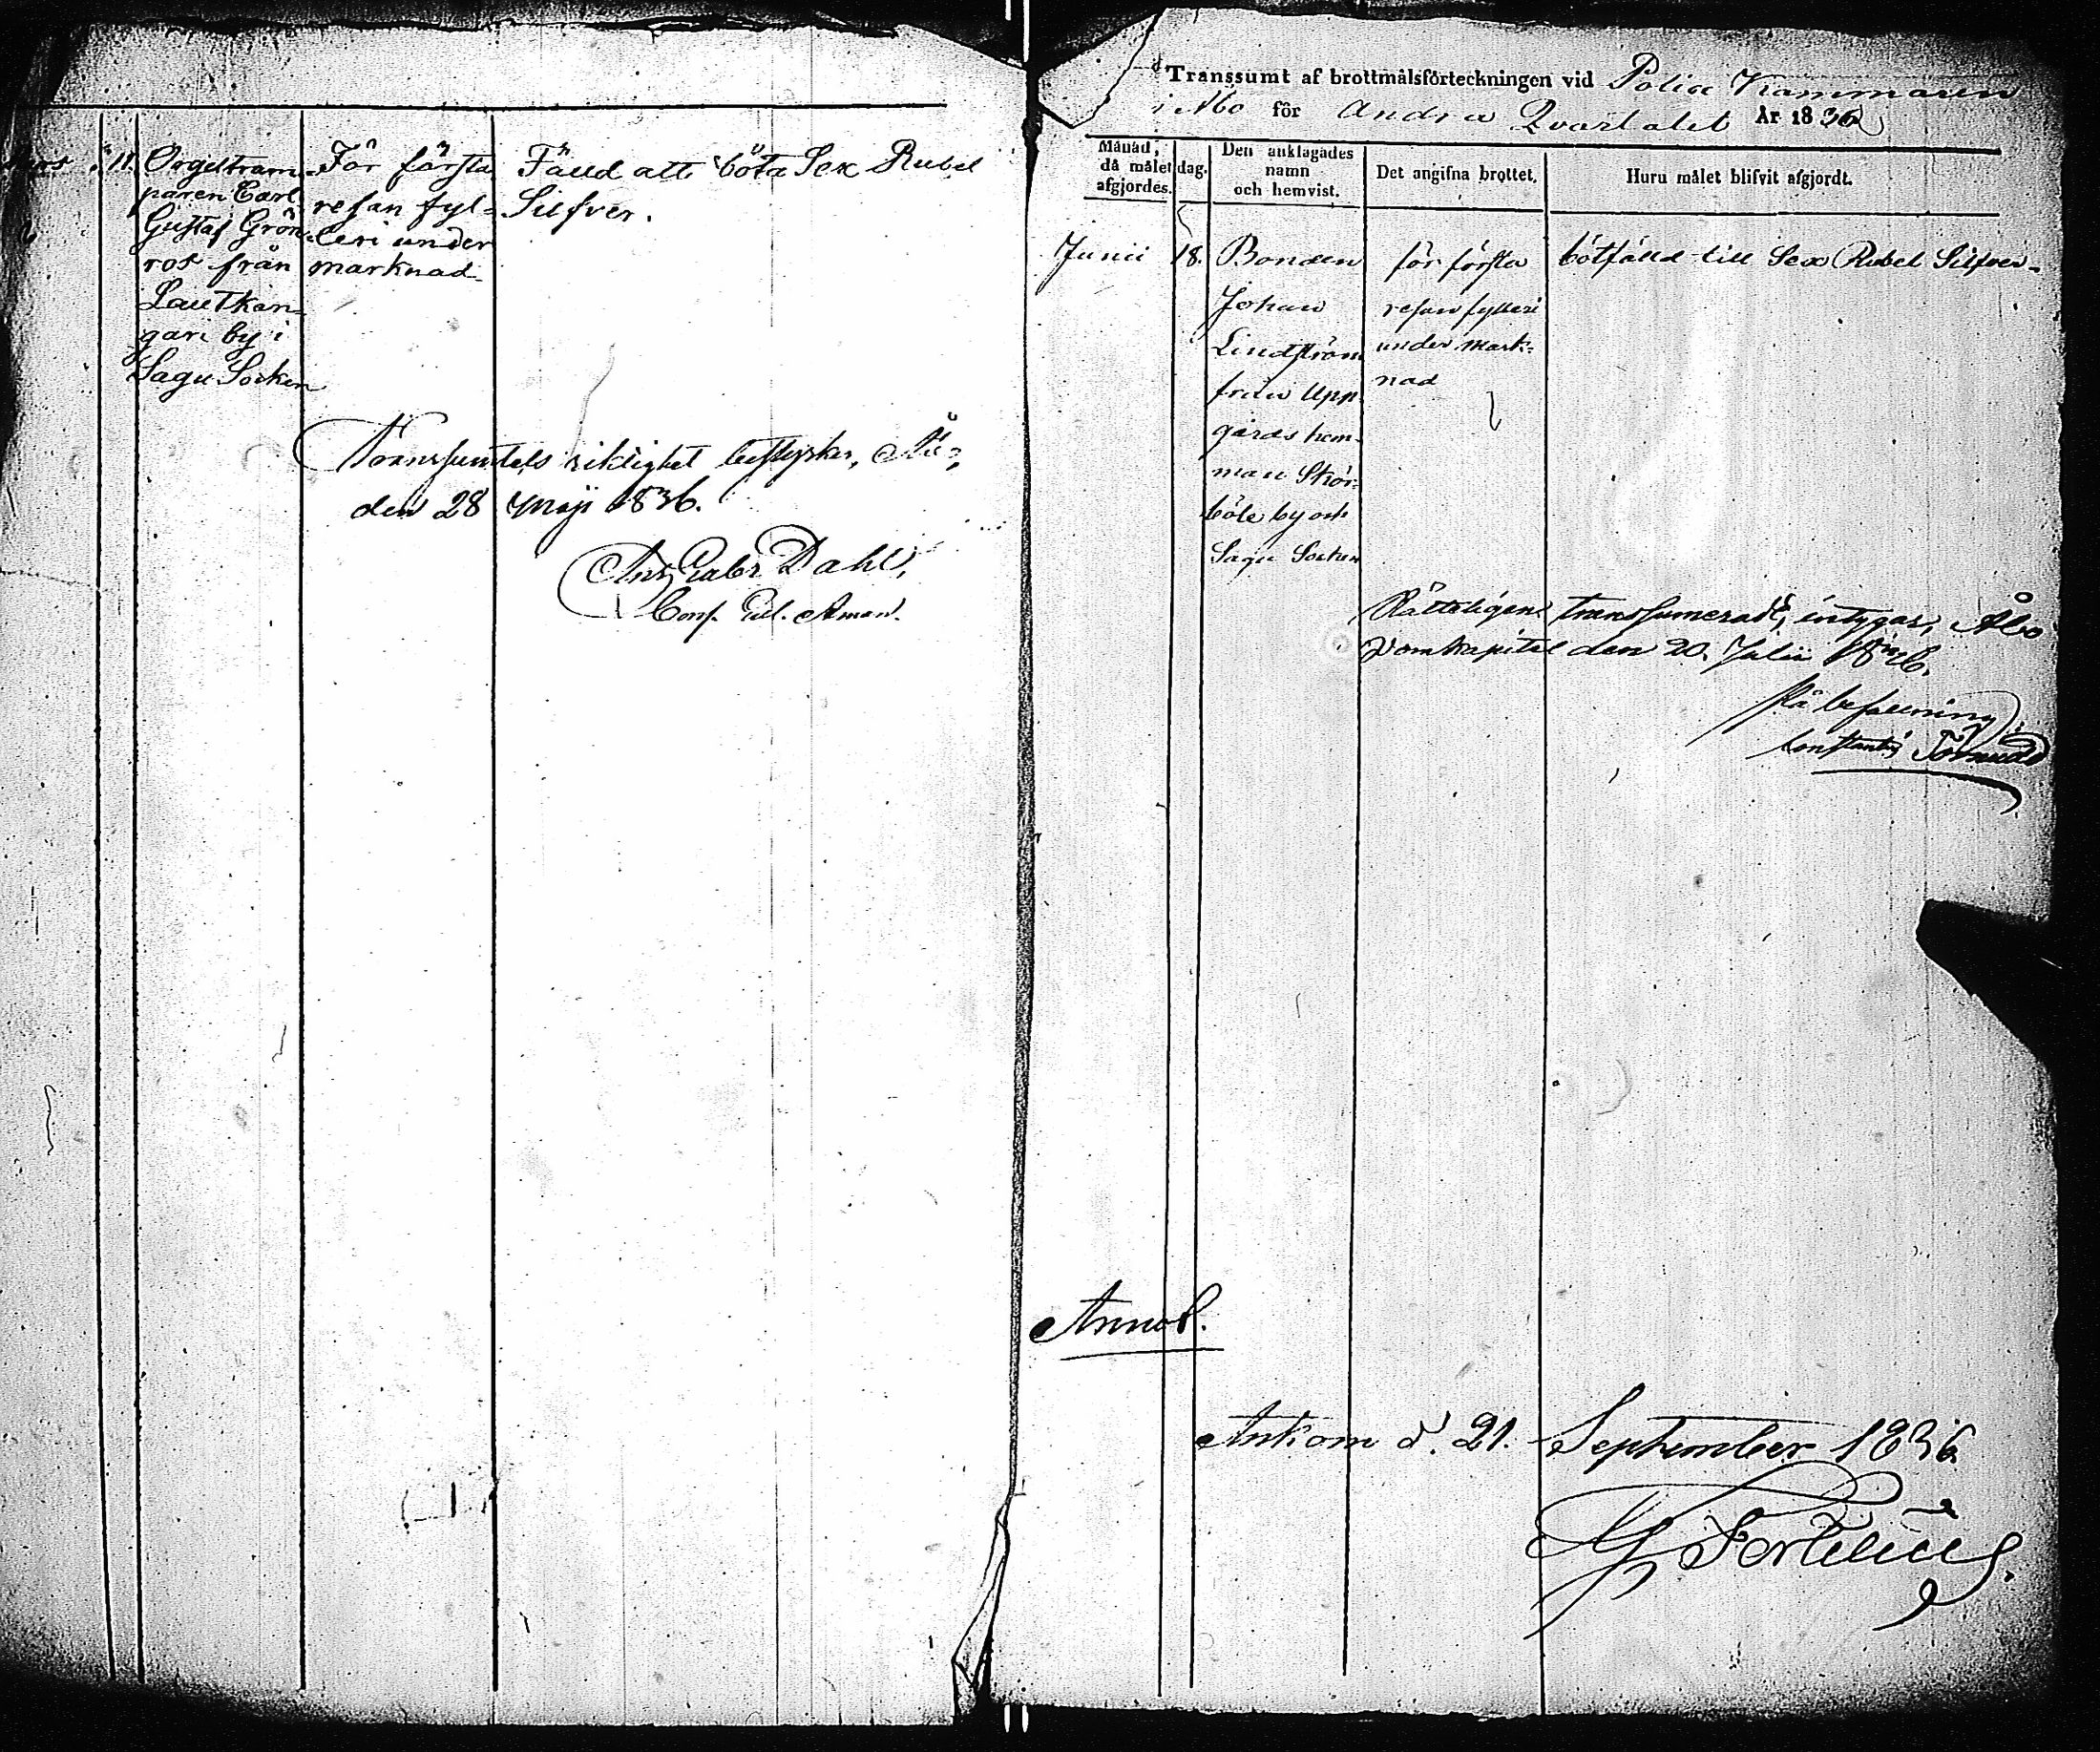 11. Orgeltram-
paren Carl
Gustaf Grön-
ros från
Lautkan-
gari by i
Sagu Socken
För första
resan fyl-
leri under
marknad
Fälld att böta Sex Rubel
Silfver.
Transsumtets riktighet bestyrker, Åbo,
den 28 Maji 1836.
Dahl,
Transsumt af brottmålsförteckningen vid Police Kammaren
i Åbo för Andra Qvartalet År 1836
Månad,
då målet
afgjordes.
dag.
Den anklagades
namn
och hemvist.
Det angifna brottet.
Huru målet blifvit afgjordt.
Junii 18.
Bonden
Johan
Lindström
från Upp-
gårds hem-
man
böle by och
Sagu Socken
för första
resan fylleri
under mark-
nad
bötfälld till Sex Rubel Silfver.
Rätteligen transsumeradt, intygar, Åbo
Domkapitel den 20. Julii 1836.
På befallning
Annot.
Ankom d. 21. September 1836